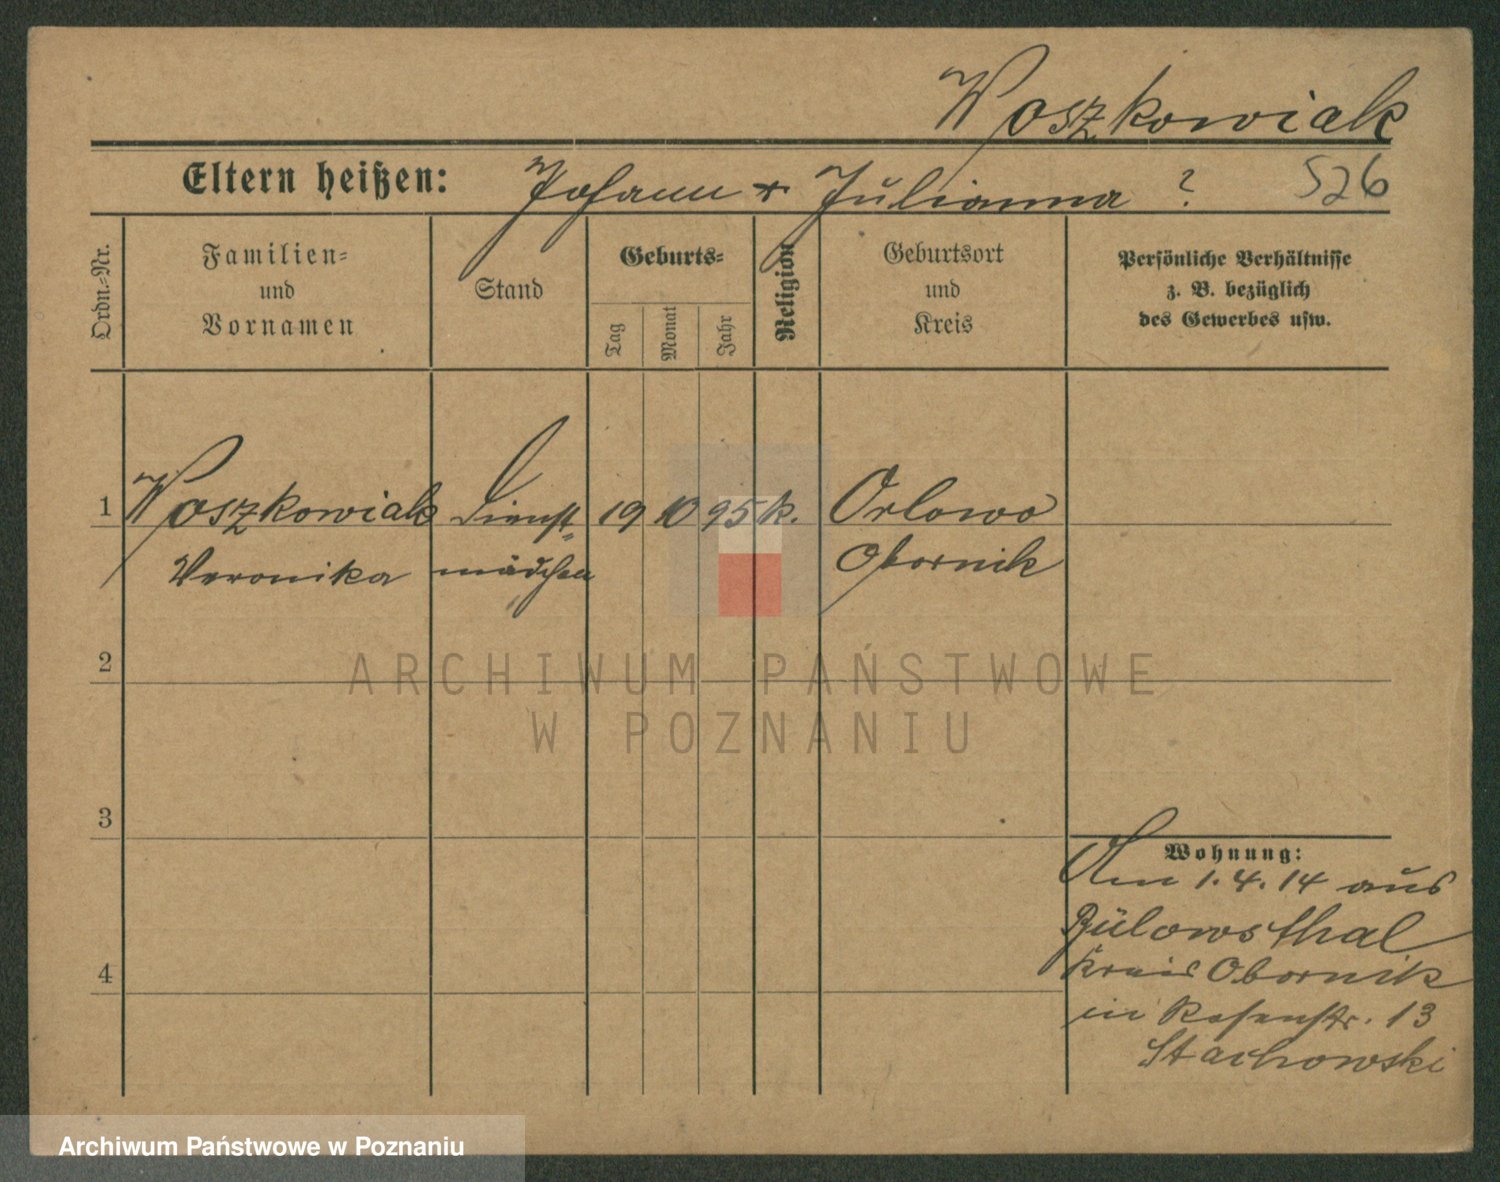 Woszkowiak
Eltern heißen: Johann + Julianna ? 526
Ordn.-Nr.
Familien-
und
Vornamen
Stand
Geburts-
Tag
Monat
Jahr
Religion
Geburtsort
und
Kreis
Persönliche Verhältnisse
z. B. bezüglich
des Gewerbes usw.
1 Woszkowiak Dienst= 19 10 95 k. Orlowo
Veronika mädchen Obornik
2
ARCHIWUM PAŃSTWOWE
W POZNANIU
3
Wohnung:
Am 1.4.14 aus
Bülowsthal
4 Kreis Obornik
in Rosenstr. 13
Stachowski
Archiwum Państwowe w Poznaniu